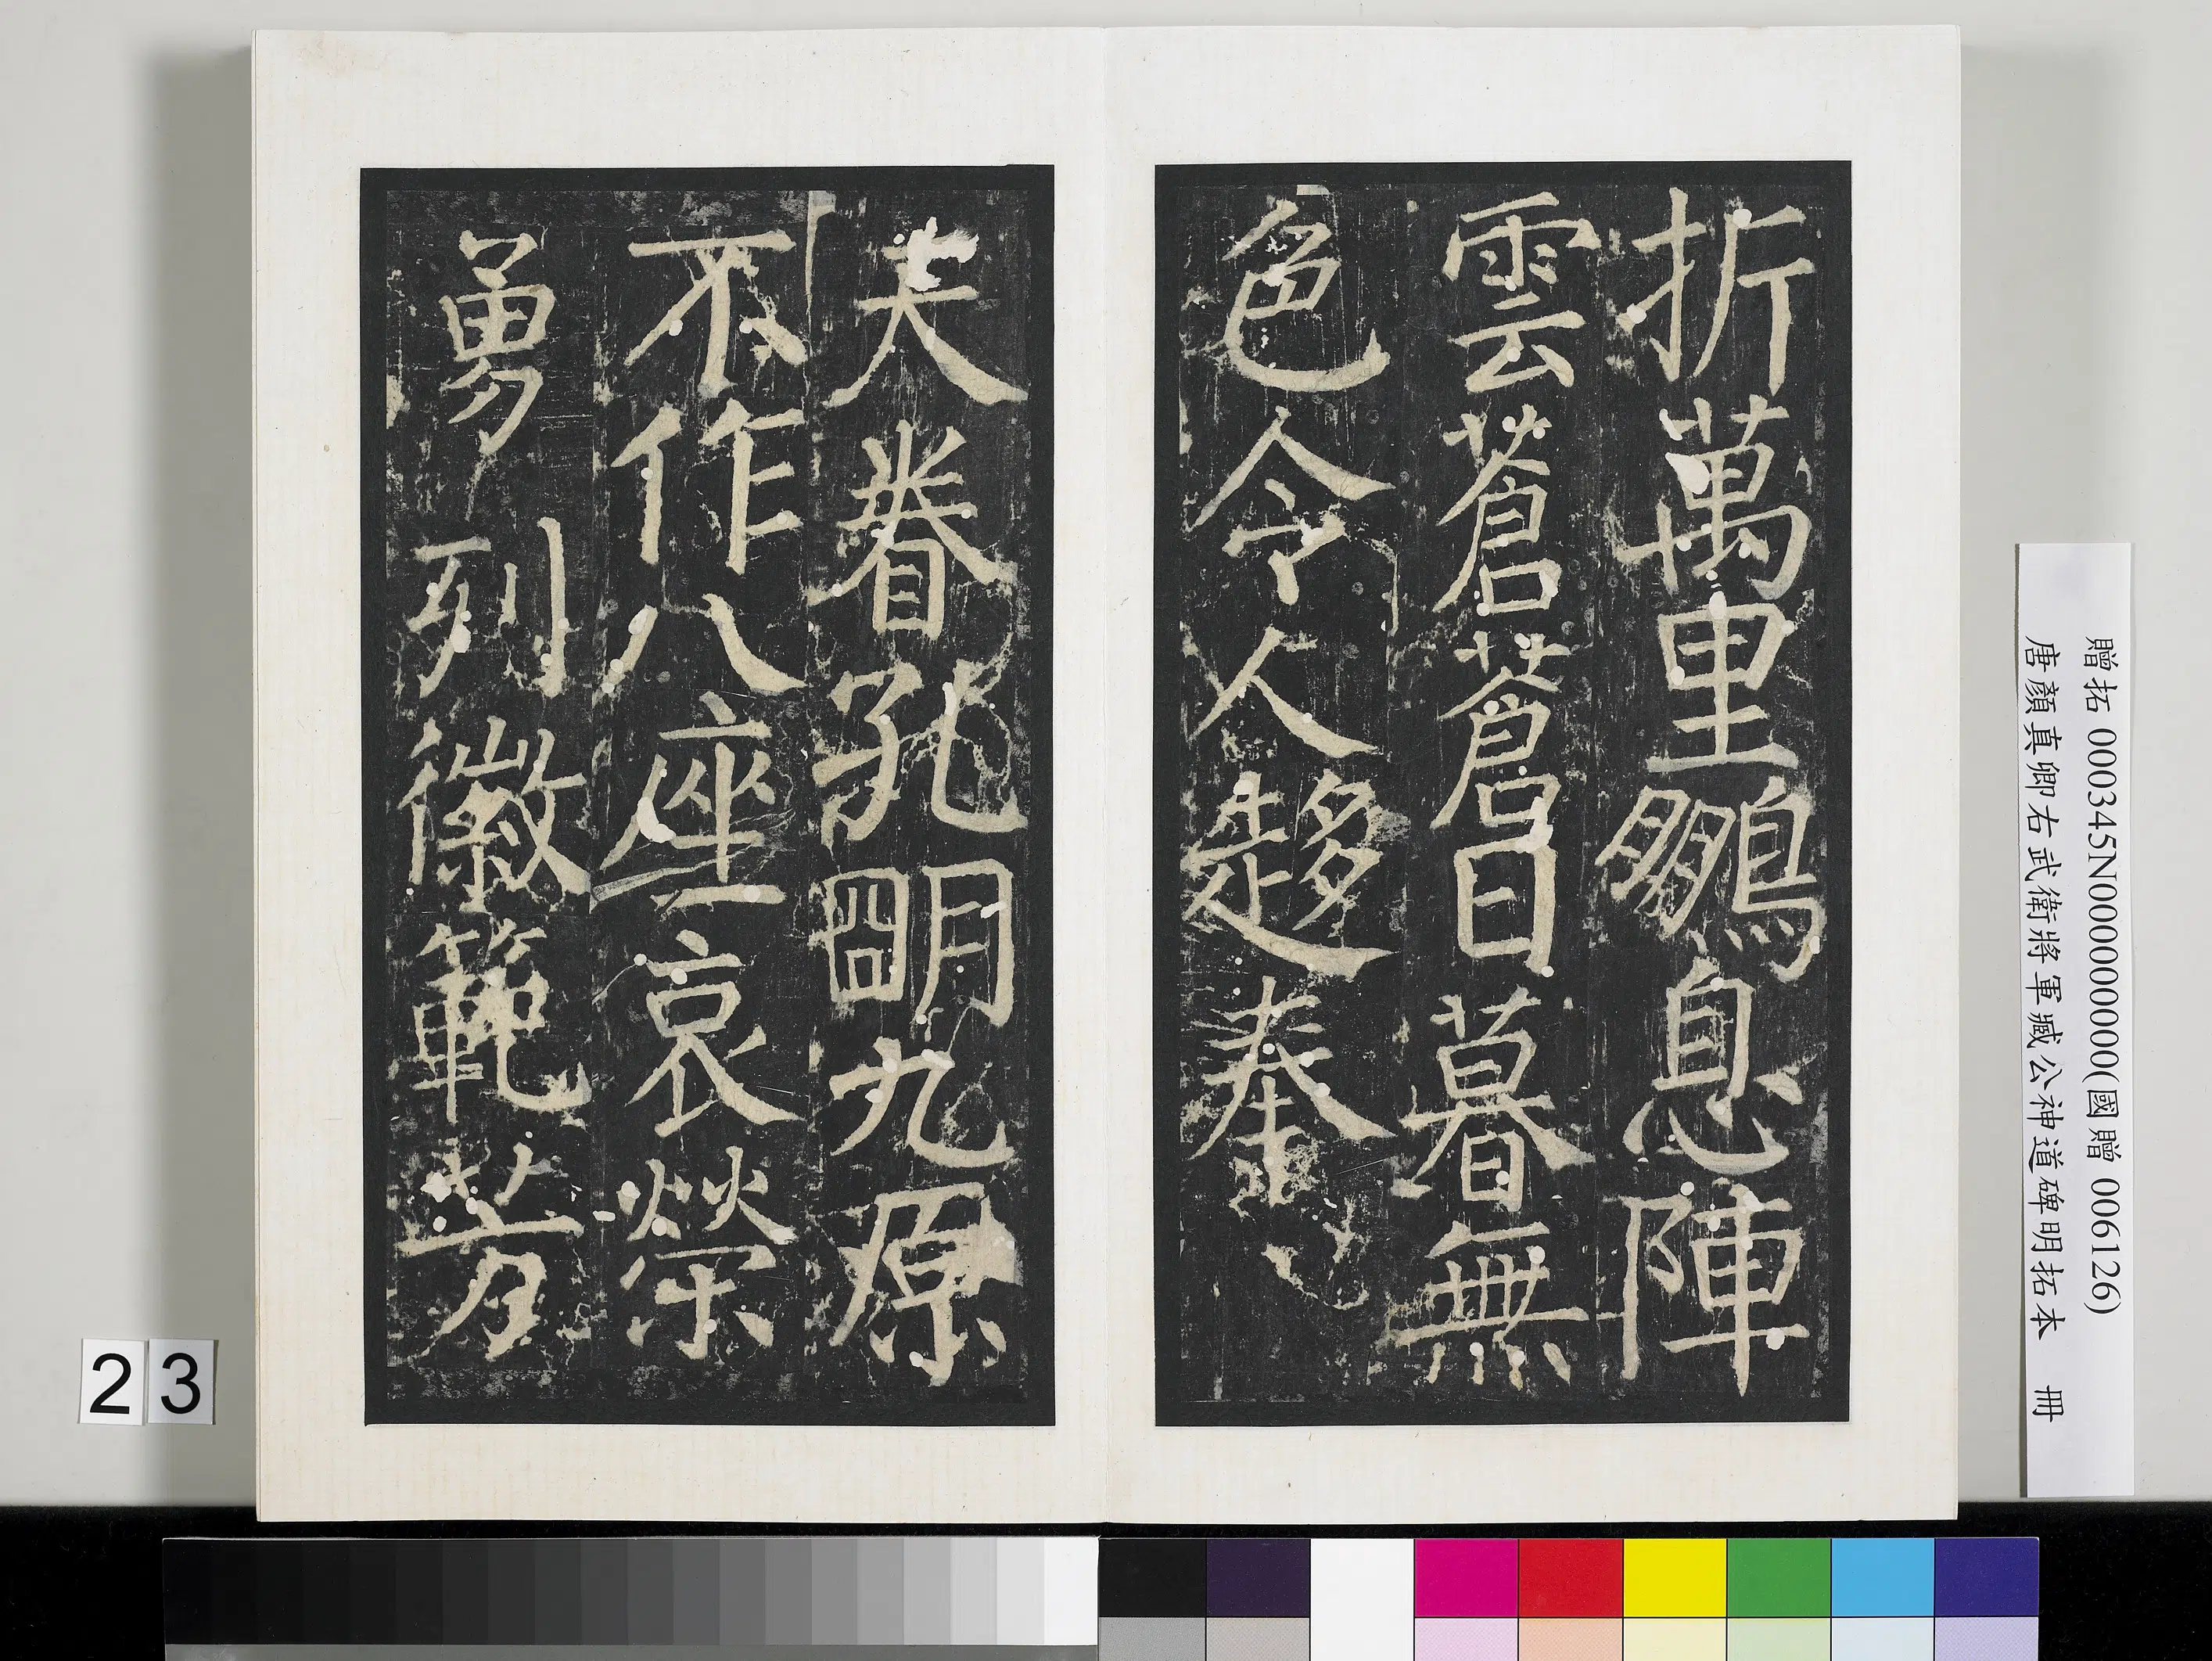 折萬里鵬息陣
雲蒼蒼日暮無
色令人趍
天眷孔朙九原
不作八座哀榮
勇列徽範芳
贈拓 000345N000000000(國贈 006126)
唐顏真卿右武衛將軍臧公神道碑明拓本 冊
23